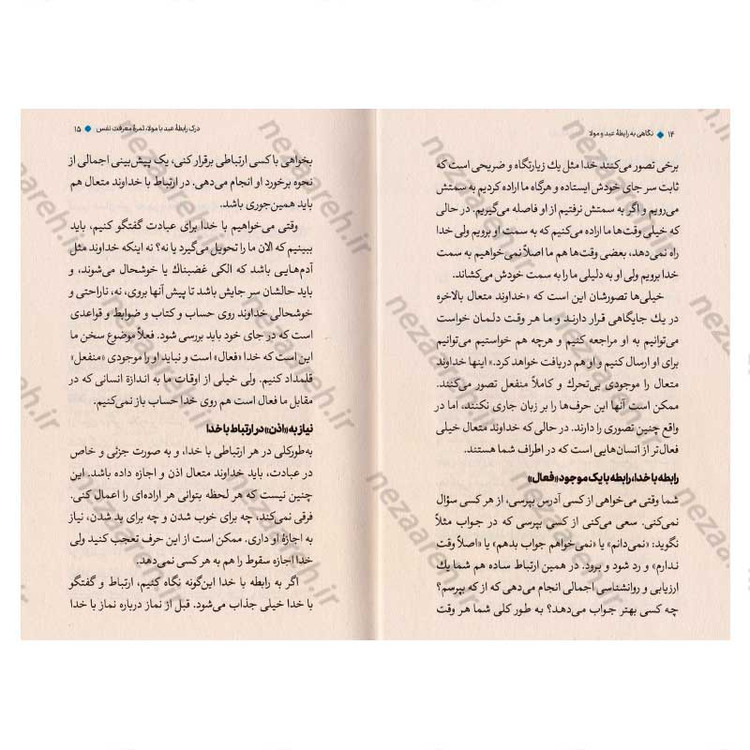 ۱۴ ◆ نگاهی به رابطهٔ عبد و مولا
برخی تصور می‌کنند خدا مثل یك زیارتگاه و ضریحی است که
ثابت سر جای خودش ایستاده و هرگاه ما اراده کردیم به سمتش
می‌رویم و اگر به سمتش نرفتیم از او فاصله می‌گیریم. در حالی
که خیلی وقت‌ها ما اراده می‌کنیم که به سمت او برویم ولی خدا
راه نمی‌دهد، بعضی وقت‌ها هم ما اصلاً نمی‌خواهیم به سمت
خدا برویم ولی او به دلیلی ما را به سمت خودش می‌کشاند.
خیلی‌ها تصورشان این است که «خداوند متعال بالاخره
در یك جایگاهی قرار دارند و ما هر وقت دلمان خواست
می‌توانیم به او مراجعه کنیم و هرچه هم خواستیم می‌توانیم
برای او ارسال کنیم و او هم دریافت خواهد کرد.» اینها خداوند
متعال را موجودی بی‌تحرك و کاملاً منفعل تصور می‌کنند.
ممکن است آنها این حرف‌ها را بر زبان جاری نکنند، اما در
واقع چنین تصوری را دارند. در حالی که خداوند متعال خیلی
فعال‌تر از انسان‌هایی است که در اطراف شما هستند.
رابطه با خدا، رابطه با یک موجود «فعال»
شما وقتی می‌خواهی از کسی آدرس بپرسی، از هر کسی سؤال
نمی‌کنی. سعی می‌کنی از کسی بپرسی که در جواب مثلاً
نگوید: «نمی‌دانم» یا «نمی‌خواهم جواب بدهم» یا «اصلاً وقت
ندارم» و رد شود و برود. در همین ارتباط ساده هم شما یك
ارزیابی و روانشناسی اجمالی انجام می‌دهی که از که بپرسم؟
چه کسی بهتر جواب می‌دهد؟ به طور کلی شما هر وقت
درک رابطهٔ عبد با مولا، ثمرهٔ معرفت نفس ◆ ۱۵
بخواهی با کسی ارتباطی برقرار کنی، یک پیش‌بینی اجمالی از
نحوه برخورد او انجام می‌دهی. در ارتباط با خداوند متعال هم
باید همین‌جوری باشد.
وقتی می‌خواهیم با خدا برای عبادت گفتگو کنیم، باید
ببینیم که الان ما را تحویل می‌گیرد یا نه؟ نه اینکه خداوند مثل
آدم‌هایی باشد که الکی غضبناك یا خوشحال می‌شوند، و
باید حالشان سر جایش باشد تا پیش آنها بروی، نه، ناراحتی و
خوشحالی خداوند روی حساب و کتاب و ضوابط و قواعدی
است که در جای خود باید بررسی شود. فعلاً موضوع سخن ما
این است که خدا «فعال» است و نباید او را موجودی «منفعل»
قلمداد کنیم. ولی خیلی از اوقات ما به اندازهٔ انسانی که در
مقابل ما فعال است هم روی خدا حساب باز نمی‌کنیم.
نیاز به «اذن» در ارتباط با خدا
به‌طورکلی در هر ارتباطی با خدا، و به صورت جزئی و خاص
در عبادت، باید خداوند متعال اذن و اجازه داده باشد. این
چنین نیست که هر لحظه بتوانی هر اراده‌ای را اعمال کنی.
فرقی نمی‌کند، چه برای خوب شدن و چه برای بد شدن، نیاز
به اجازهٔ او داری. ممکن است از این حرف تعجب کنید ولی
خدا اجازه سقوط را هم به هر کسی نمی‌دهد.
اگر به رابطه با خدا این‌گونه نگاه کنیم، ارتباط و گفتگو
با خدا خیلی جذاب می‌شود. قبل از نماز درباره نماز با خدا
nezaareh.ir